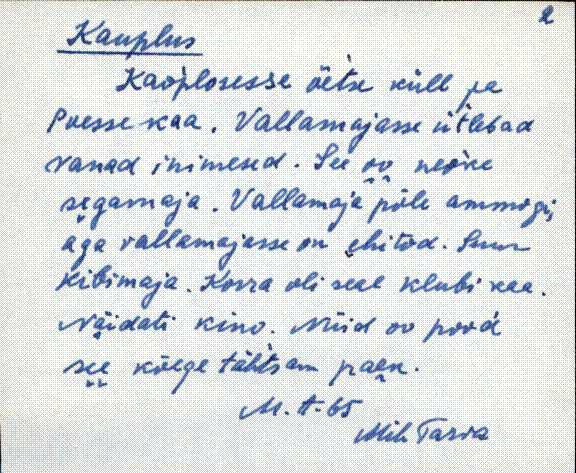 2
Kauplus
Kaoplosesse öetse küll ja
Poesse kaa. Vallamajasse ütlebad
vanad inimesed. See oo neoke
segamaja. Vallamaja pôle ammogi,
aga vallamajasse on ehitod. Suur
kibimaja. Korra oli seal klubi kaa.
Näidati kino. Nüid oo pood
see kõege tähtsam paek.
M. A-65
Mih Tarva